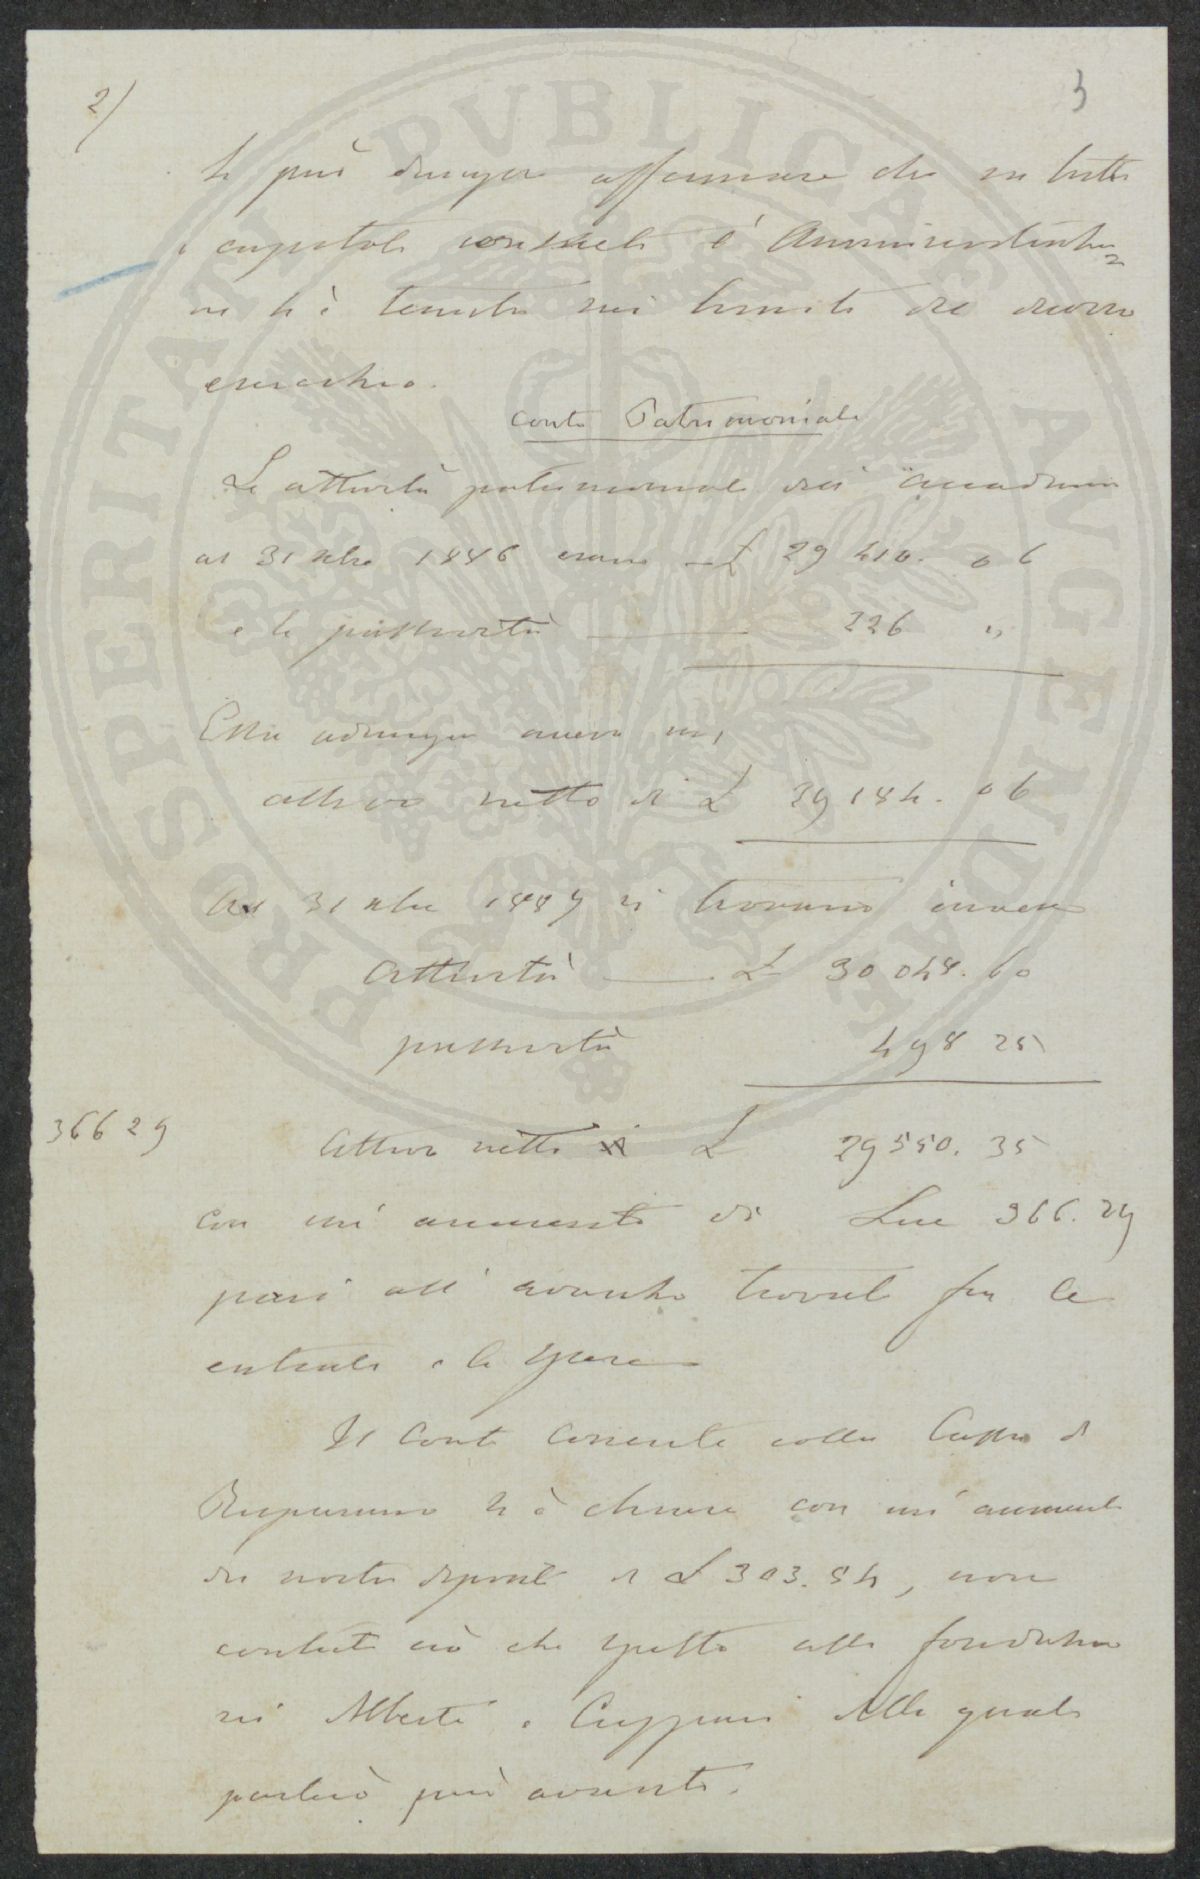 2/
3
Si può dunque affermare che in tutti
i capitoli
si è tenuta nei limiti del
esercizio.
Conto Patrimoniale
Le attività patrimoniali dell'Accademia
al 31 xbre 1886 erano £ 29410. 06
e le passività 226 "
Essa adunque aveva un
attivo netto di £ 29184. 06
Al 31 xbre 1887 si trovano invece
Attività £ 30048. 60
passività 498 25
366 29
Attivo netto £ 29550. 35
con un aumento di Lire 366. 29
pari all'avanzo trovato fra le
entrate e le spese
Il Conto Corrente colla Cassa di
Risparmio si è chiuso con un aumento
dei nostri depositi di £ 303.84, non
ciò che spetta alle fondazioni
Alberti e alle quali
più avanti.
PROSPERITATI PVBLICAE AVGENDAE